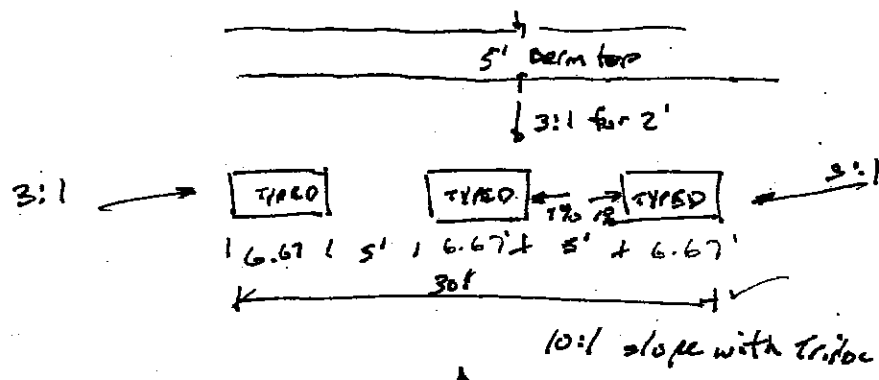 5' Berm top
3:1 for 2'
3:1 TYPE D TYPE D 1% 1% TYPE D 3:1
6.67 5' 6.67' 5' 6.67'
30'
10:1 slope with